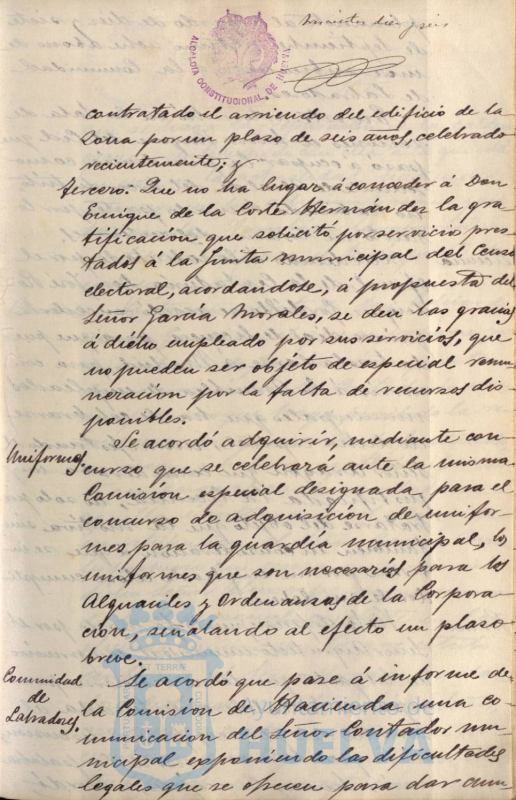 ciento diez y seis
ALCALDIA CONSTITUCIONAL DE HUELVA
contratado el arriendo del edificio de la
Zona por un plazo de seis años, celebrado
recientemente; y
Tercero: Que no ha lugar á conceder á Don
Enrique de la Corte Hernández la gra-
tificación que solicitó por servicio pres-
tados á la Junta municipal del Censo
electoral, acordandose, á propuesta del
Señor García Morales, se den las gracias
á dicho empleado por sus servicios, que
no pueden ser objeto de especial remu-
neracion por la falta de recursos dis-
ponibles.
Uniformes.
Se acordó adquirir, mediante con-
curso que se celebrará ante la misma
Comisión especial designada para el
concurso de adquisicion de unifor-
mes para la guardia municipal, los
uniformes que son necesarios para los
Alguaciles y Ordenanzas de la Corpora-
cion, señalando al efecto un plazo
breve.
Comunidad
de
Labradores.
Se acordó que pase á informe de
la Comision de Hacienda una co-
municacion del Señor Contador mu-
nicipal exponiendo las dificultades
legales que se ofrecen para dar cum-